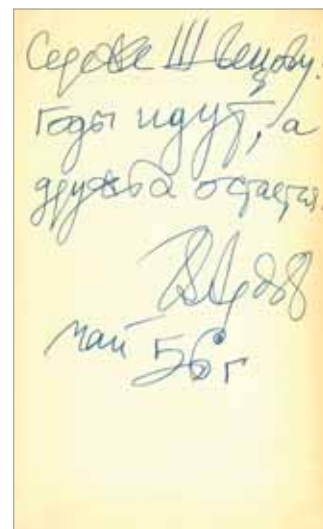 Сереже Швецову.
Годы идут, а
дружба остается.
ВАрдов
май 56 г